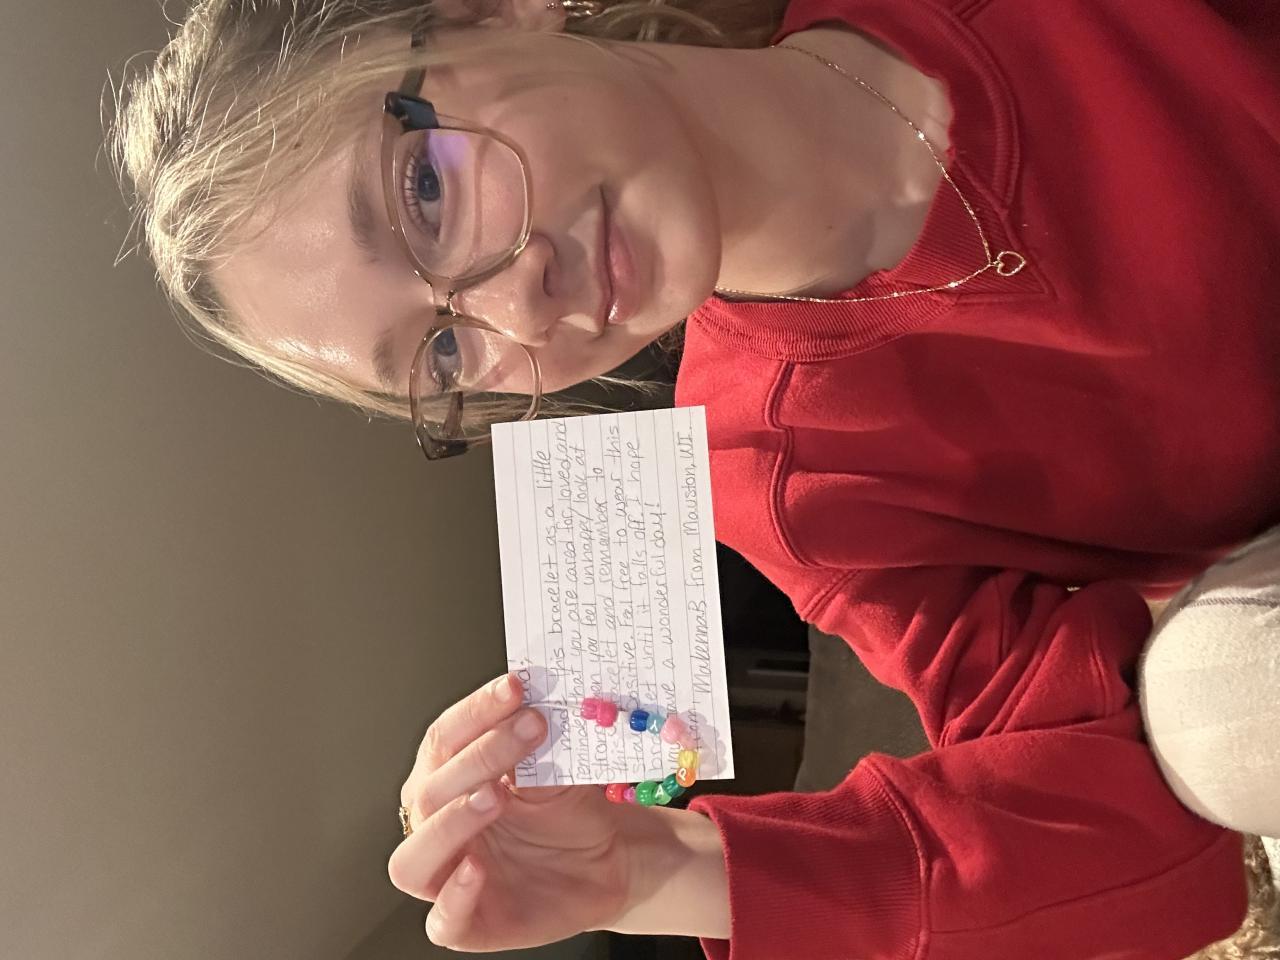 I made this bracelet as a little
reminder that you are cared for, loved, and
strong. When you feel unhappy, look at
this bracelet and remember to
stay positive. Feel free to wear this
bracelet until it falls off. I hope
you have a wonderful day!
From, Makenna B. from Mauston, WI.